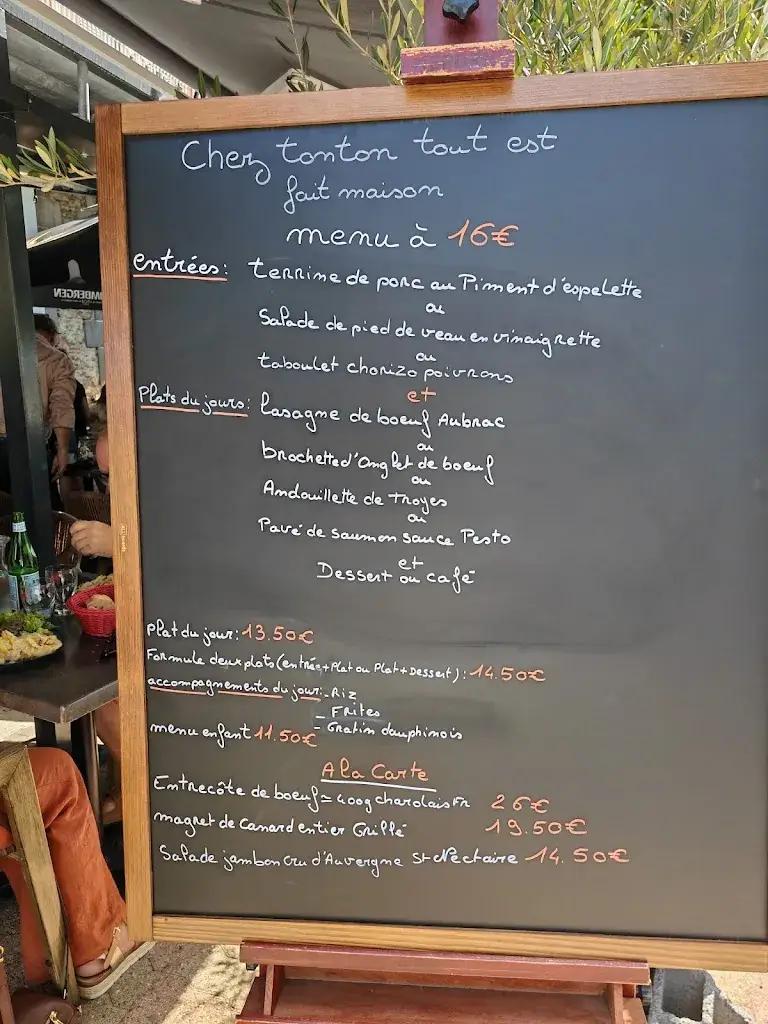 Chez tonton tout est
fait maison
menu à 16€
entrées: terrine de porc au Piment d'espelette
ou
Salade de pied de veau en vinaigrette
ou
taboulet chorizo poivrons
et
Plats du jours: lasagne de boeuf Aubrac
ou
brochette d'Onglet de boeuf
ou
Andouillette de Troyes
ou
Pavé de saumon sauce Pesto
et
Dessert ou café
plat du jour: 13.50€
Formule deux plats (entrée + Plat ou Plat + Dessert): 14.50€
accompagnements du jour: - Riz
- Frites
- Gratin dauphinois
menu enfant 11.50€
A la Carte
Entrecôte de boeuf ≃ 400g charolais Fr 26€
magret de Canard entier Grillé 19.50€
Salade jambon cru d'Auvergne St Nectaire 14.50€